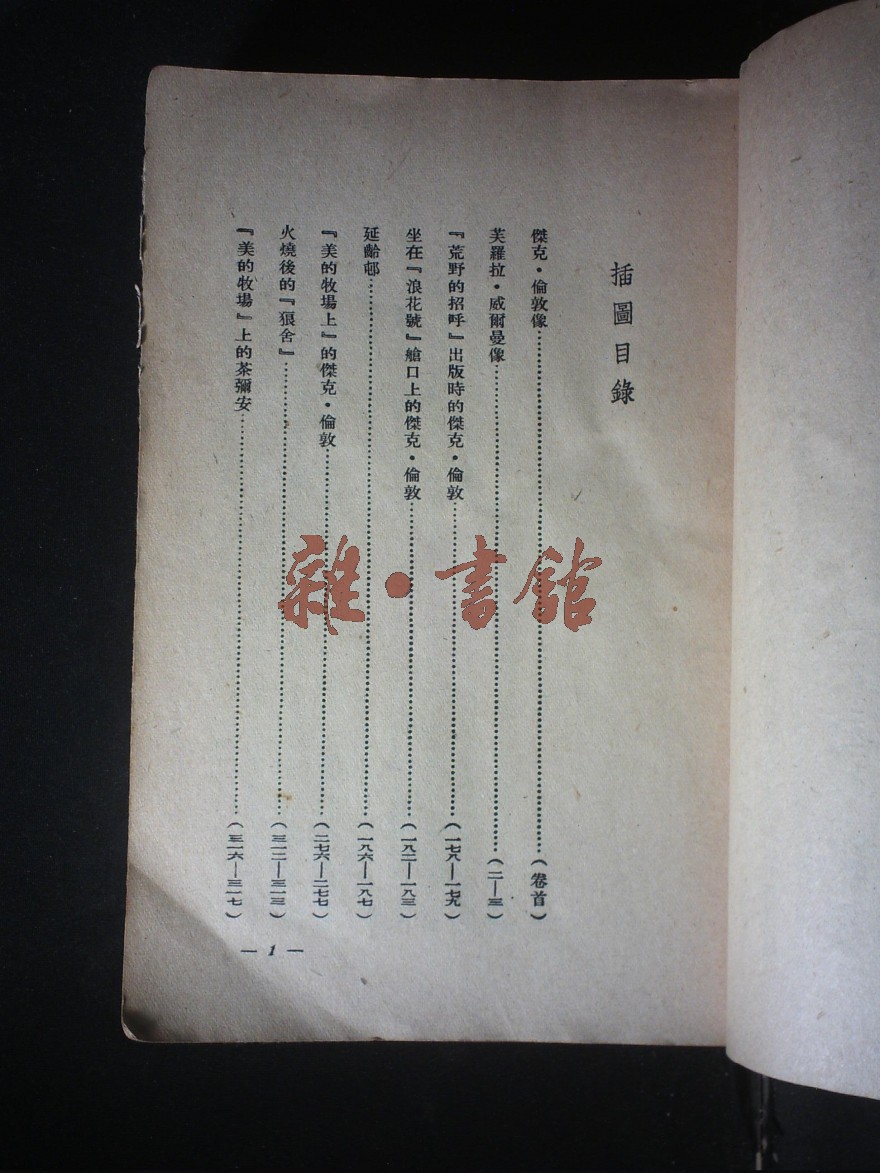 插圖目錄
傑克・倫敦像……(卷首)
芙羅拉・威爾曼像……(二—三)
『荒野的招呼』出版時的傑克・倫敦……(一七八—一七九)
坐在『浪花號』艙口上的傑克・倫敦……(一八二—一八三)
延齡邨……(一八六—一八七)
『美的牧場上』的傑克・倫敦……(二七六—二七七)
火燒後的『狼舍』……(三一二—三一三)
『美的牧場』上的茶彌安……(三一六—三一七)
— 1 —
雜・書館